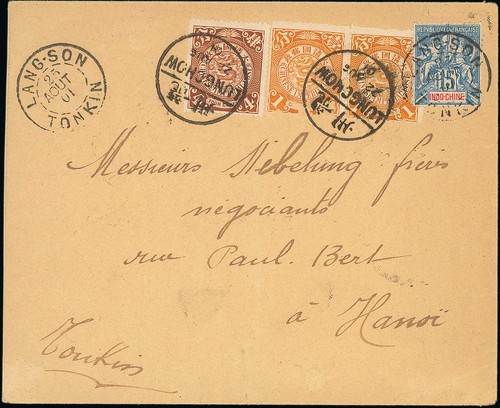 LANG-SON
25
AOUT
01
TONKIN
LUNGCHOW
LUNGCHOW
LANG-SON
RÉPUBLIQUE FRANÇAISE
15
INDO-CHINE
Messieurs Nebelung frères
négociants
rue Paul. Bert
à Hanoï
Tonkin